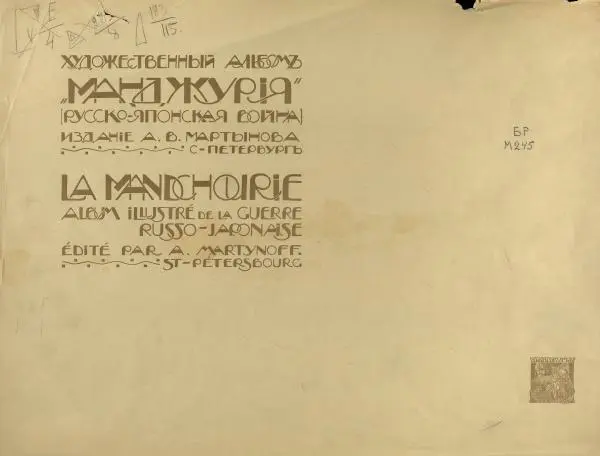 ХУДОЖЕСТВЕННЫЙ АЛЬБОМЪ
„МАНДЖУРІЯ"
(РУССКО-ЯПОНСКАЯ ВОЙНА)
ИЗДАНІЕ А. В. МАРТЫНОВА
С-ПЕТЕРБУРГЪ
LA MANDCHOURIE
ALBUM ILLUSTRÉ DE LA GUERRE
RUSSO-JAPONAISE
ÉDITÉ PAR A. MARTYNOFF.
ST-PÉTERSBOURG
БР
М245